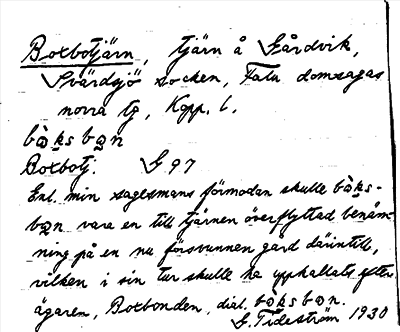 Boxbotjärn, tjärn å Gårdvik,
Svärdsjö socken, Falu domsagas
norra tg, Kopp. l.
bòksbon
Boxbotj. G 97
Enl. min sagesmans förmodan skulle bòks-
bon vara en till tjärnen överflyttad benäm-
ning på en nu försvunnen gård därintill,
vilken i sin tur skulle ha uppkallats efter
ägaren, Boxbonden, dial. bòksbon.
G. Tideström 1930